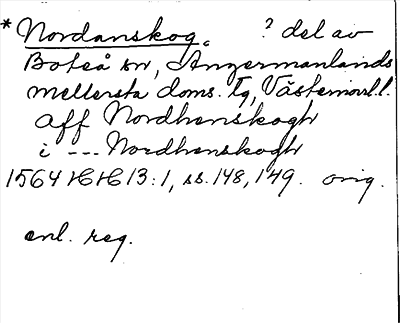 * Nordanskog. ? del av
Boteå sn, Ångermanlands
mellersta doms. tg, Västernorrl. l.
aff Nordhenskogh
i --- Nordhenskogh
1564 HH 13:1, ss. 148, 149. orig.
enl. reg.